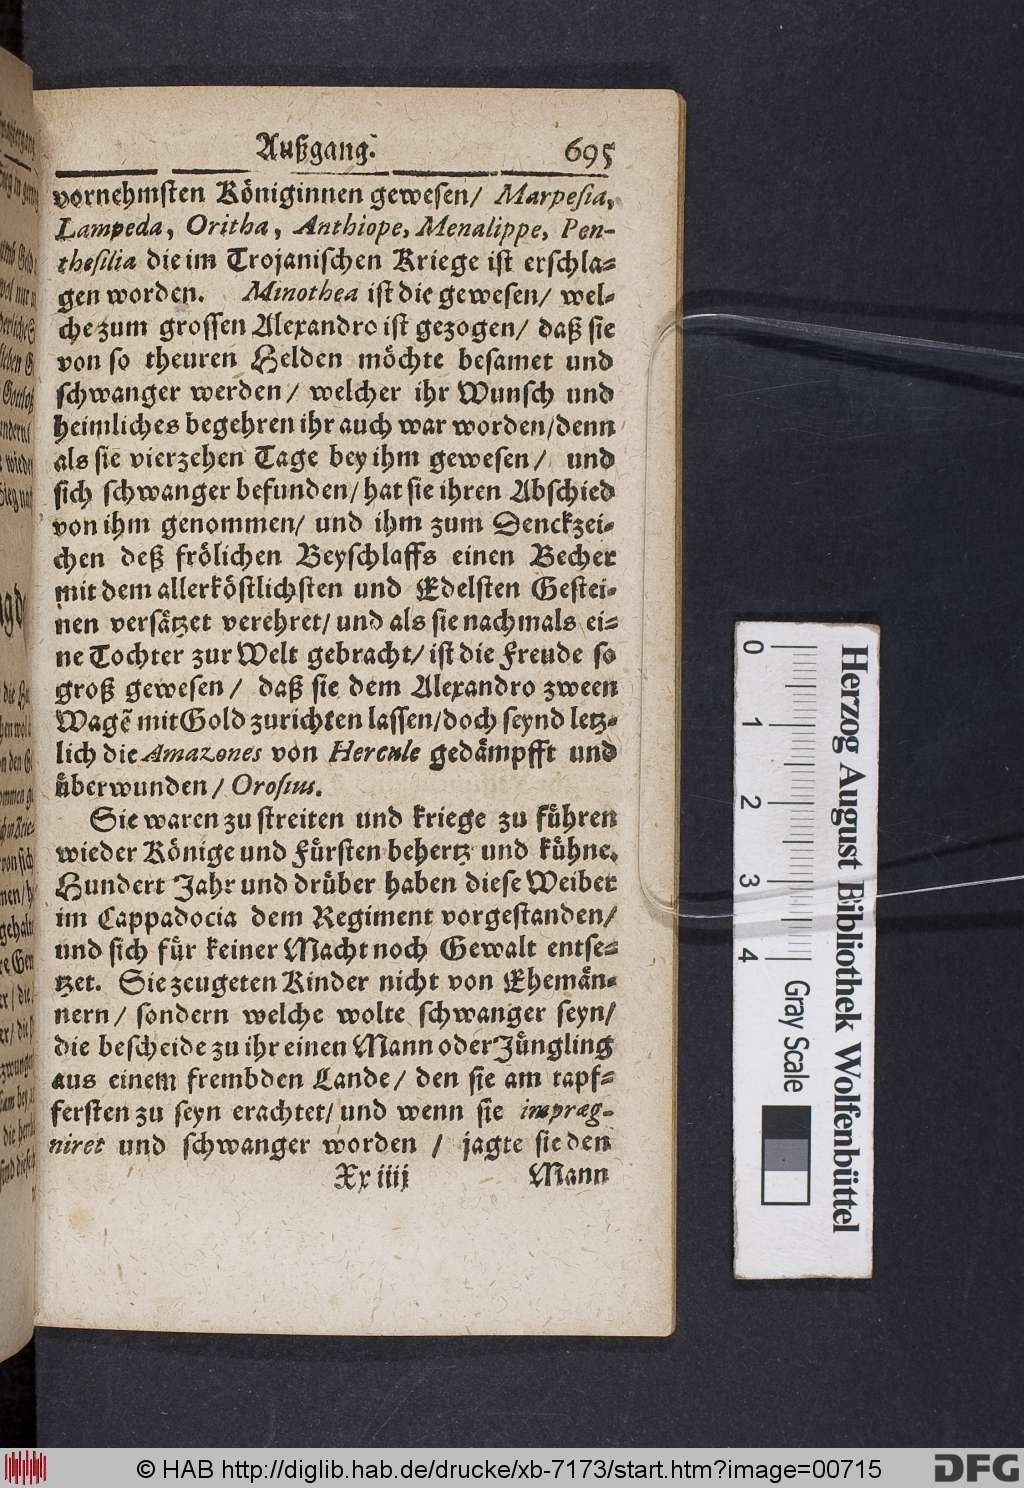 Außgang. 695
vornehmsten Königinnen gewesen/ Marpesia,
Lampeda, Oritha, Anthiope, Menalippe, Pen-
thesilia die im Trojanischen Kriege ist erschla-
gen worden. Minothea ist die gewesen/ wel-
che zum grossen Alexandro ist gezogen/ daß sie
von so theuren Helden möchte besamet und
schwanger werden/ welcher ihr Wunsch und
heimliches begehren ihr auch war worden/denn
als sie vierzehen Tage bey ihm gewesen/ und
sich schwanger befunden/ hat sie ihren Abschied
von ihm genommen/ und ihm zum Denckzei-
chen deß frölichen Beyschlaffs einen Becher
mit dem allerköstlichsten und Edelsten Gestei-
nen versätzet verehret/ und als sie nachmals ei-
ne Tochter zur Welt gebracht/ ist die Freude so
groß gewesen/ daß sie dem Alexandro zween
Wagẽ mit Gold zurichten lassen/doch seynd letz-
lich die Amazones von Hercule gedämpfft und
überwunden/ Orosius.
Sie waren zu streiten und kriege zu führen
wieder Könige und Fürsten behertz und kühne,
Hundert Jahr und drüber haben diese Weiber
im Cappadocia dem Regiment vorgestanden/
und sich für keiner Macht noch Gewalt entse-
tzet. Sie zeugeten Kinder nicht von Ehemän-
nern/ sondern welche wolte schwanger seyn/
die bescheide zu ihr einen Mann oder Jüngling
aus einem frembden Lande/ den sie am tapf-
fersten zu seyn erachtet/ und wenn sie impræg-
niret und schwanger worden/ jagte sie den
Xx iiij Mann
Herzog August Bibliothek Wolfenbüttel
0 1 2 3 4 Gray Scale
© HAB http://diglib.hab.de/drucke/xb-7173/start.htm?image=00715
DFG